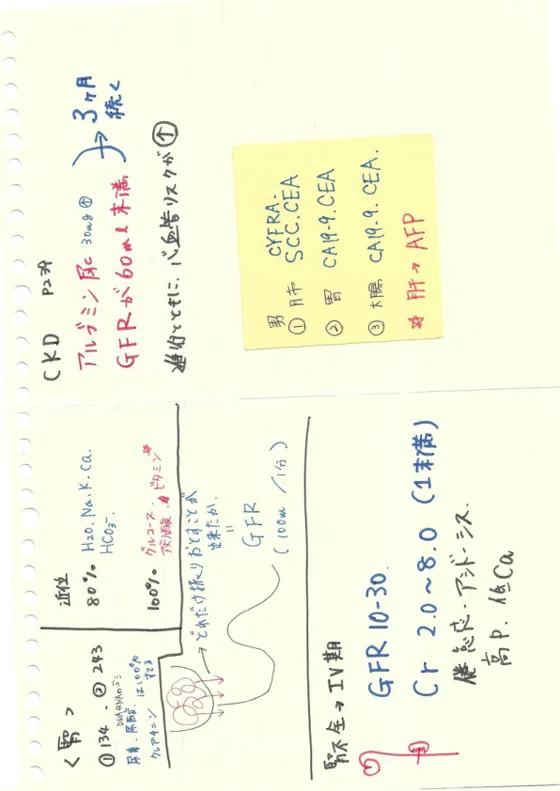 <腎>
① 134 - ② 243
DNA RNAのゴミ
尿素・尿酸は100%すてる
クレアチニン
近位
80% H2O. Na. K. Ca.
HCO3-.
100% グルコース.
アミノ酸. ビタミン
どれだけ捨てり おとすことが
出来たか.
=
GFR
(100ml/1分)
腎不全→IV期
GFR 10-30.
Cr 2.0~8.0 (1未満)
アシドーシス.
高P. 低Ca
CKD P239
アルブミン尿 30mg ⊕
GFRが60ml 未満
→ 3ヶ月
続く
進行とともに、心血管リスクが↑
男
① 肺 CYFRA.
SCC. CEA
② 胃 CA19-9. CEA
③ 大腸 CA19-9. CEA.
☆ 肝→AFP